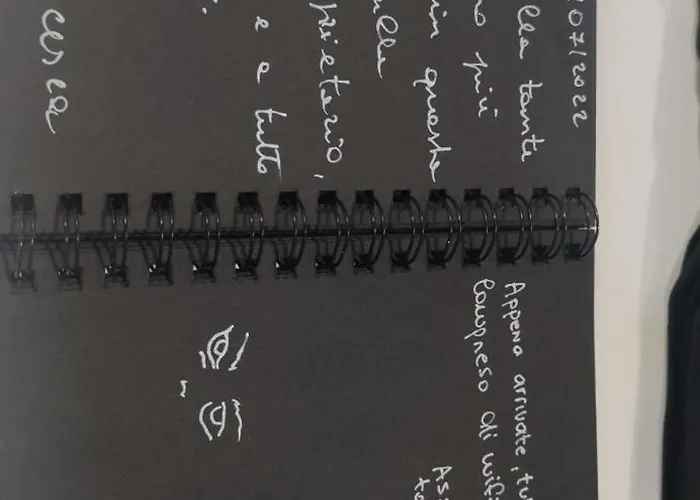 /07/2022
lle tante
no più
in queste
ulle
prietario,
e e tutto
cesca
Appena arrivate, tu
Compreso di wifi
Ass
to